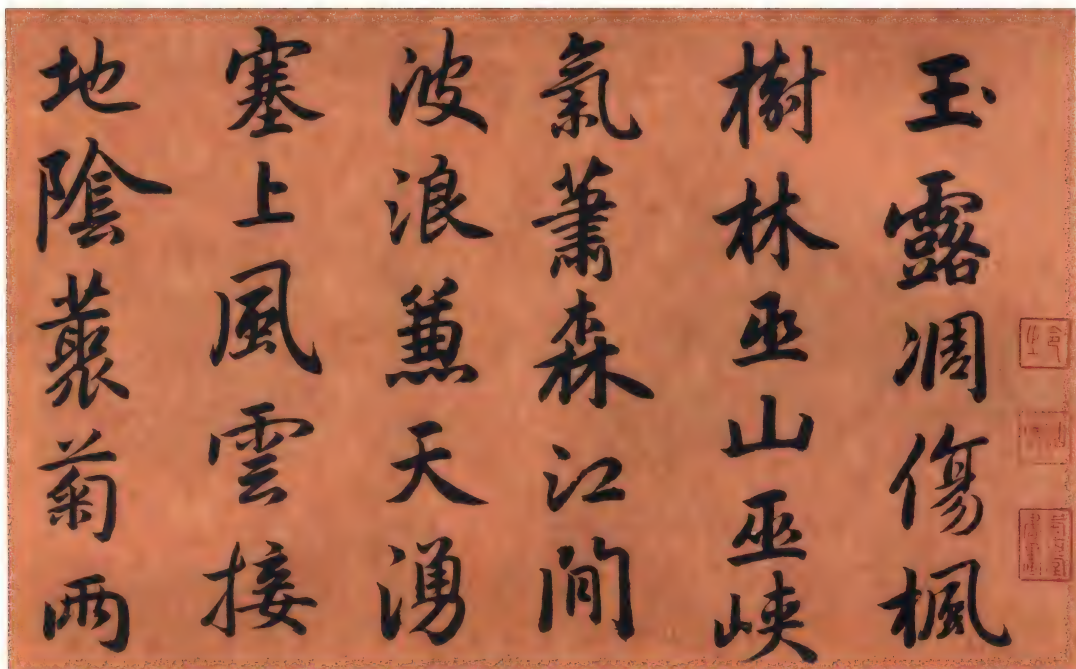 玉露凋傷楓
樹林巫山巫峽
氣蕭森江間
波浪蒹天湧
塞上風雲接
地陰藂菊兩